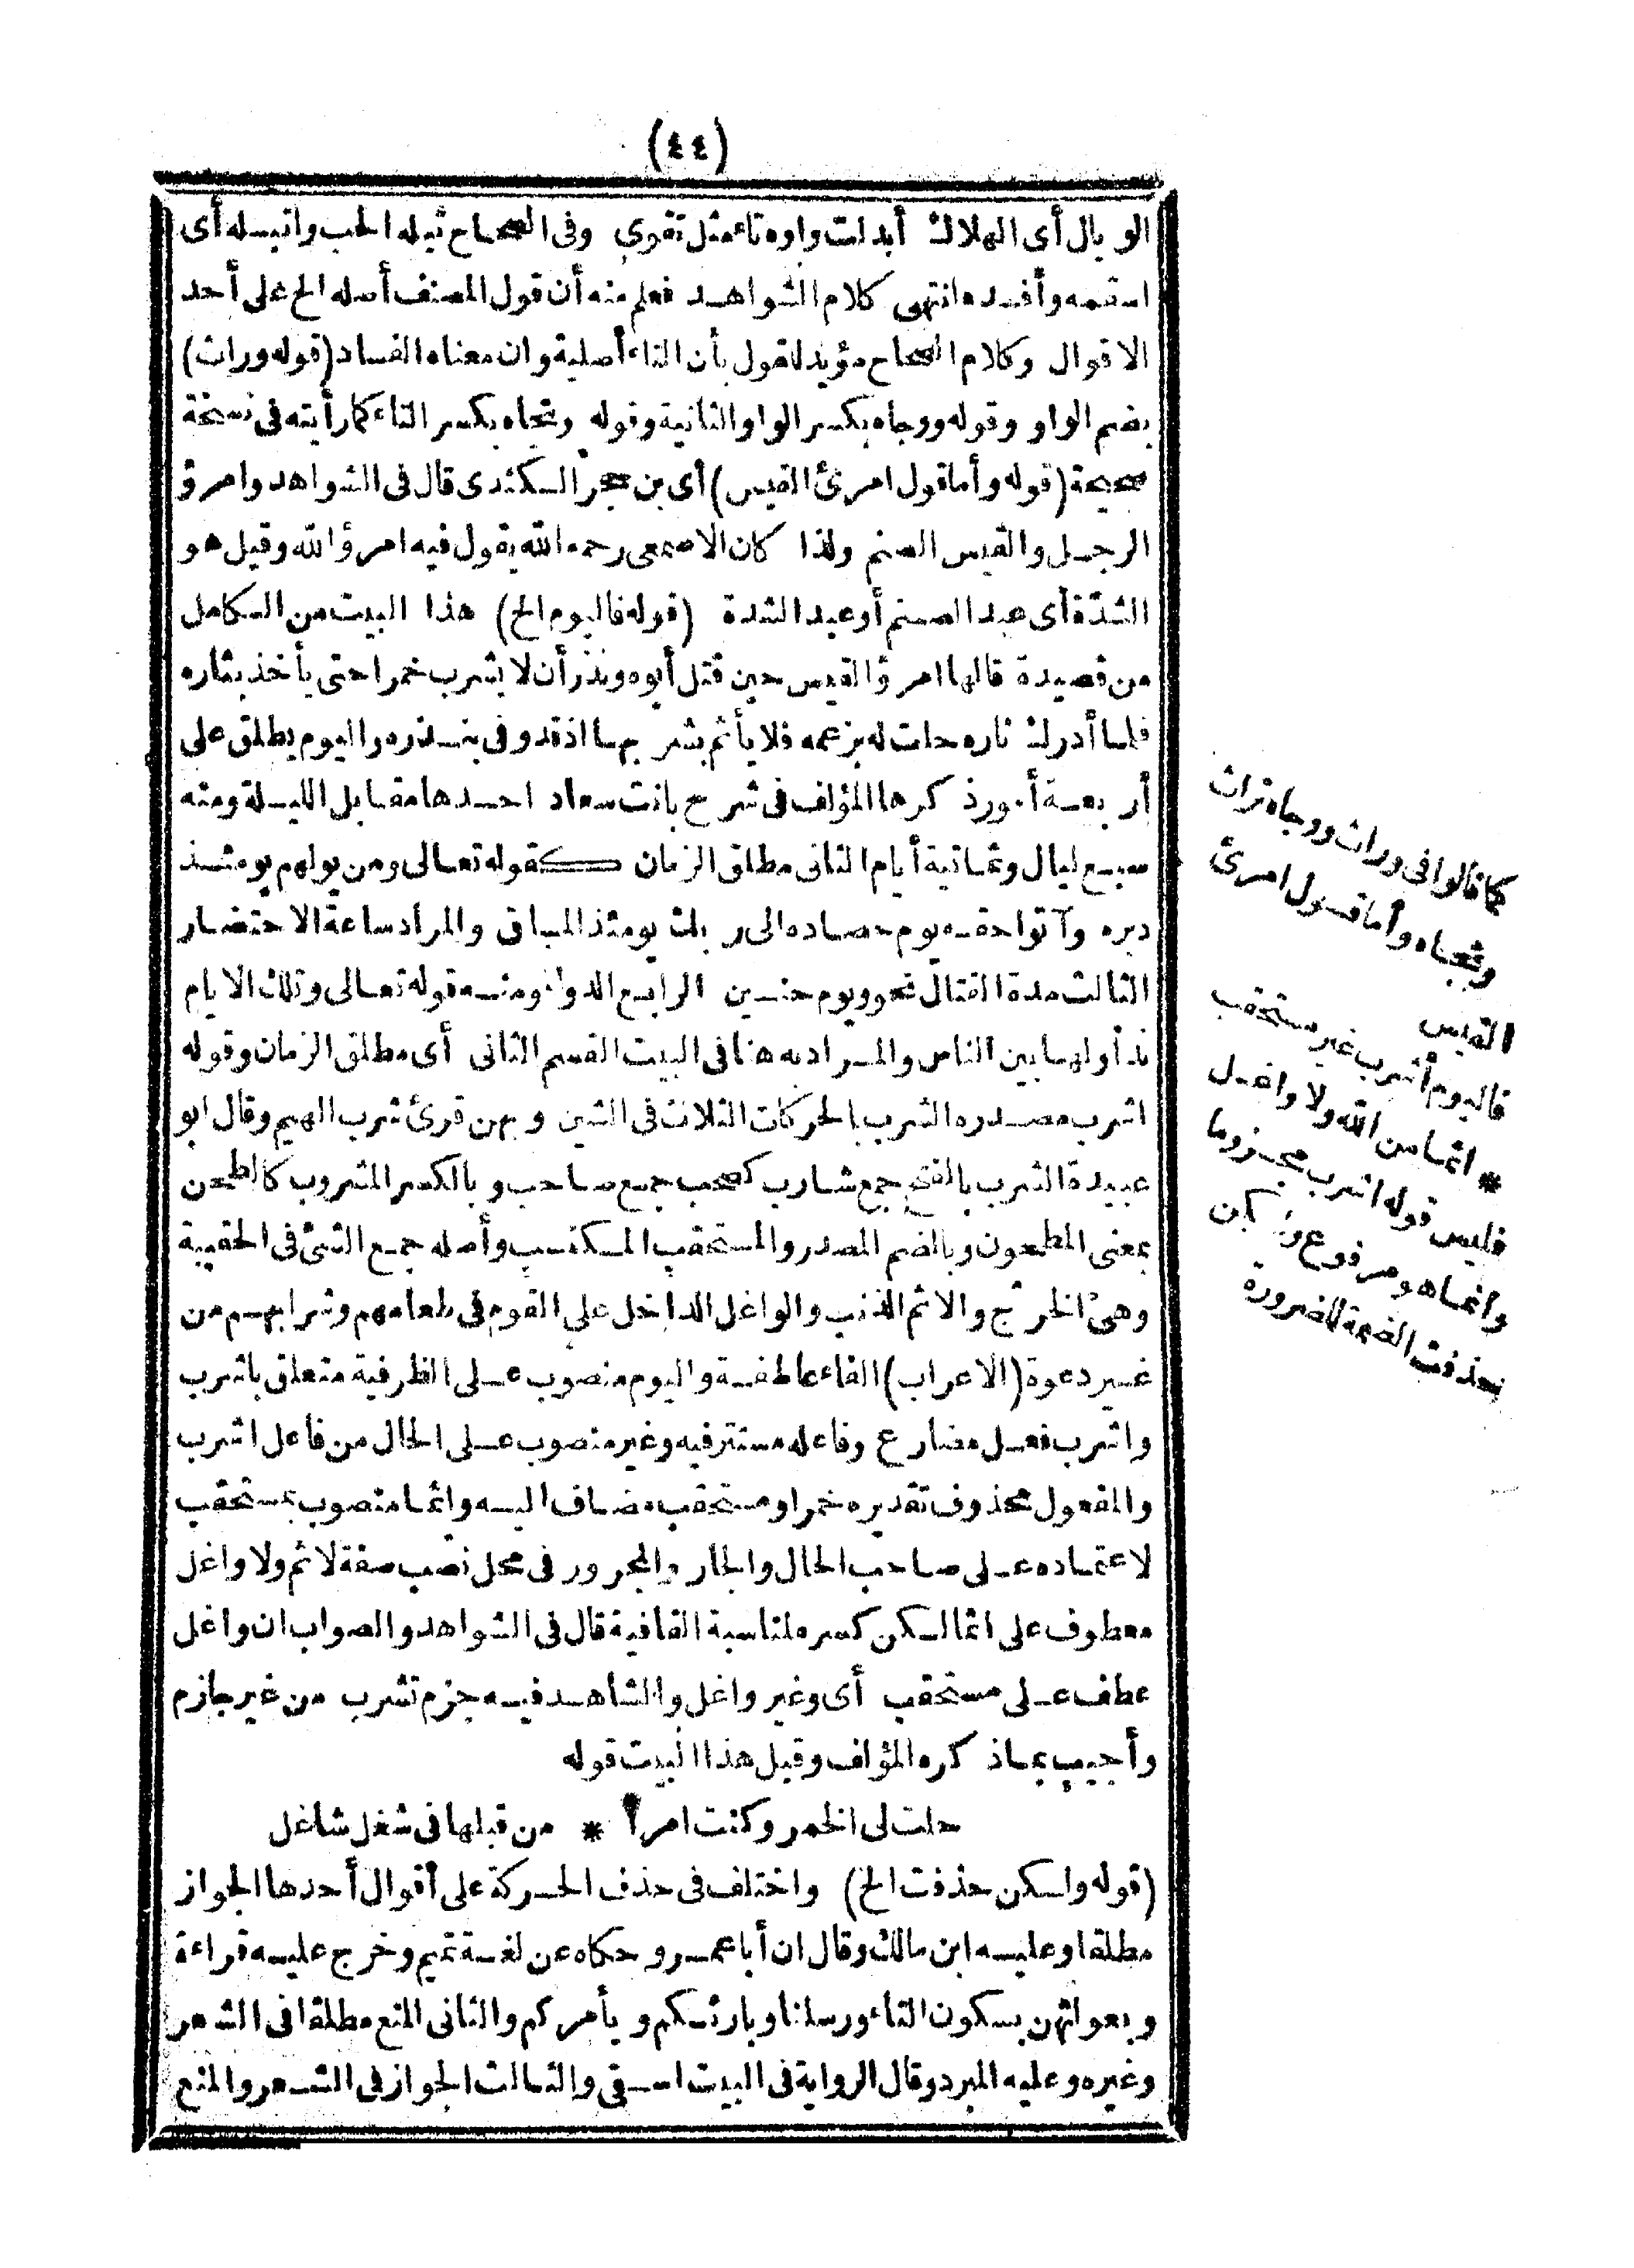 (٤٤)
الوبال أى الهلاك أبدلت واوه تاء مثل تقوى وفى الصحاح تبله الحب واتبله أى
اسقمه وأفسده انتهى كلام الشواهد فعلم منه أن قول المصنف أصله الخ على أحد
الاقوال وكلام الصحاح مؤيد للقول بأن التاء أصلية وان معناه الفساد (قوله وراث)
بضم الواو وقوله ووجاه بكسر الواو الثانية وقوله وتجاه بكسر التاء كما رأيته فى نسخة
صحيحة (قوله وأما قول امرئ القيس) أى بن حجر الكندى قال فى الشواهد وامرؤ
الرجل والقيس الصنم ولذا كان الاصمعى رحمه الله يقول فيه امرؤ الله وقيل هو
الشدّة أى عبد الصنم أو عبد الشدة (قوله فاليوم الخ) هذا البيت من الكامل
من قصيدة قالها امرؤ القيس حين قتل أبوه ونذر أن لا يشرب خمرا حتى يأخذ بثاره
فلما أدرك ثاره حلت له بزعمه فلا يأثم بشربها اذ قد وفى بنذره واليوم يطلق على
أربعة أمور ذكرها المؤلف فى شرح بانت سعاد احدها مقابل الليلة ومنه
سبع ليال وثمانية أيام الثانى مطلق الزمان كقوله تعالى ومن يولهم يومئذ
دبره وآتوا حقه يوم حصاده الى ربك يومئذ المساق والمراد ساعة الاحتضار
الثالث مدة القتال نحو ويوم حنين الرابع الدولة ومنه قوله تعالى وتلك الايام
نداولها بين الناس والمراد به هنا فى البيت القسم الثانى أى مطلق الزمان وقوله
اشرب مصدره الشرب بالحركات الثلاث فى الشين وبهن قرئ شرب الهيم وقال ابو
عبيدة الشرب بالفتح جمع شارب كصحب جمع صاحب وبالكسر المشروب كالطحن
بمعنى المطحون وبالضم المصدر والمستحقب المكتسب وأصله جمع الشئ فى الحقيبة
وهى الخرج والاثم الذنب والواغل الداخل على القوم فى طعامهم وشرابهم من
غير دعوة (الاعراب) الفاء عاطفة واليوم منصوب على الظرفية متعلق باشرب
واشرب فعل مضارع وفاعله مستتر فيه وغير منصوب على الحال من فاعل اشرب
والمفعول محذوف تقديره خمرا ومستحقب مضاف اليه واثما منصوب بمستحقب
لاعتماده على صاحب الحال والجار والمجرور فى محل نصب صفة لاثم ولا واغل
معطوف على اثما لكن كسره لمناسبة القافية قال فى الشواهد والصواب ان واغل
عطف على مستحقب أى وغير واغل والشاهد فيه جزم تشرب من غير جازم
وأجيب بما ذكره المؤلف وقبل هذا البيت قوله
حلت لى الخمر وكنت امرأ * من قبلها فى شغل شاغل
(قوله ولكن حذفت الخ) واختلف فى حذف الحركة على أقوال أحدها الجواز
مطلقا وعليه ابن مالك وقال ان أبا عمرو حكاه عن لغة تميم وخرج عليه قراءة
وبعولتهن بسكون التاء ورسلنا وبارئكم ويأمركم والثانى المنع مطلقا فى الشعر
وغيره وعليه المبرد وقال الرواية فى البيت اسقى والثالث الجواز فى الشعر والمنع
كما قالوا فى وراث ووجاه تراث
وتجاه وأما قول امرئ
القيس
فاليوم أشرب غير مستحقب
* اثما من الله ولا واغل
فليس قوله اشرب مجزوما
وانما هو مرفوع ولكن
حذفت الضمة للضرورة